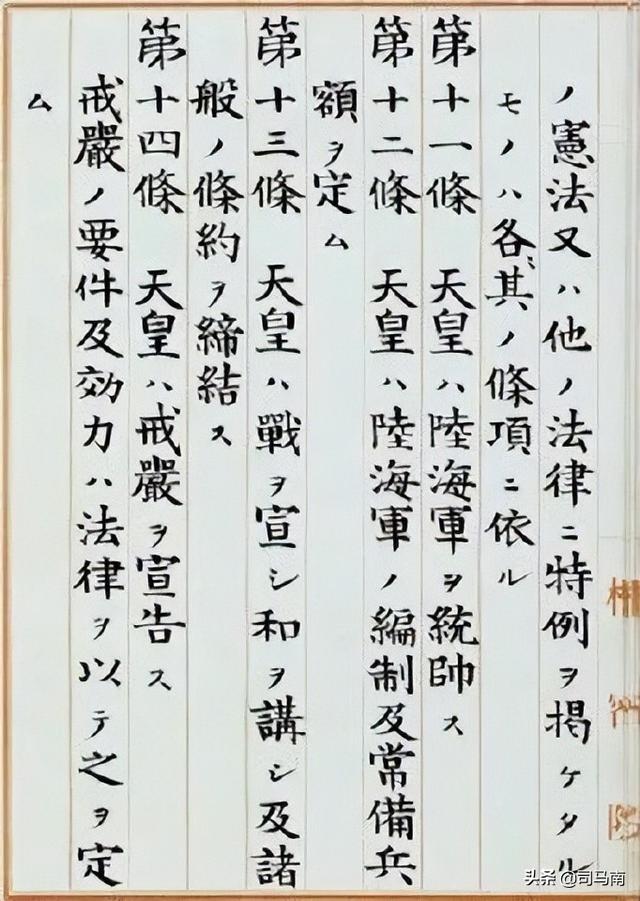 ノ憲法又ハ他ノ法律ニ特例ヲ掲ケタル
モノハ各〻其ノ條項ニ依ル
第十一條　天皇ハ陸海軍ヲ統帥ス
第十二條　天皇ハ陸海軍ノ編制及常備兵
額ヲ定ム
第十三條　天皇ハ戰ヲ宣シ和ヲ講シ及諸
般ノ條約ヲ締結ス
第十四條　天皇ハ戒嚴ヲ宣告ス
戒嚴ノ要件及効力ハ法律ヲ以テ之ヲ定
ム
头条 @司马南